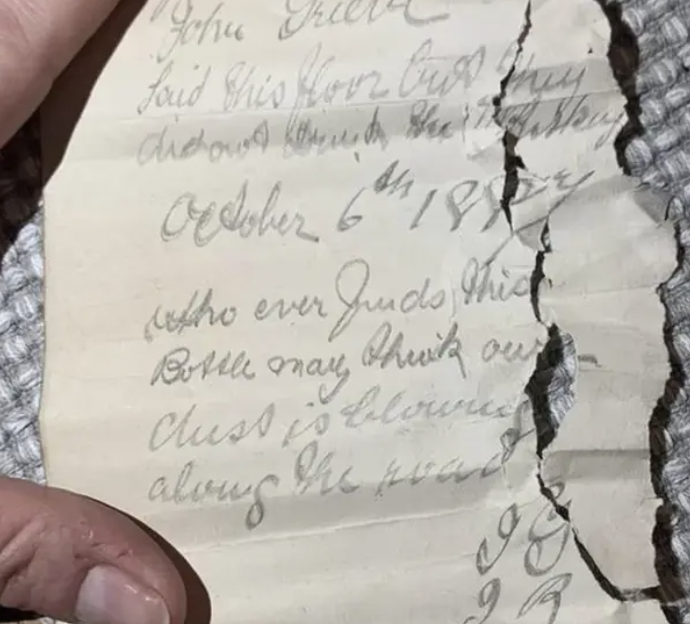 John Grieve
laid this floor but they
did not drink the Whisky
October 6th 1887
who ever finds this
Bottle may think our
dust is blowing
along the road
J G
J R